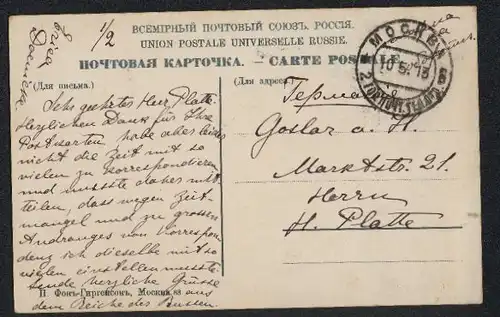 ВСЕМІРНЫЙ ПОЧТОВЫЙ СОЮЗЪ. РОССІЯ.
UNION POSTALE UNIVERSELLE RUSSIE.
ПОЧТОВАЯ КАРТОЧКА. — CARTE POSTALE.
(Для письма.)
(Для адреса.)
1/2
МОСКВА
10 5 13
Sehr geehrter Herr Platte
Herzlichen Dank für Ihre
Postkarten, habe aber leider
nicht die Zeit mit so
vielen zu korrespondieren
und musste daher mit-
teilen, dass wegen Zeit-
mangel und zu grossen
Andranges von Korrespon
denz ich dieselbe mit so
vielen einstellen musste
sende herzliche Grüsse aus
dem Reiche des Russen.
Германія
Goslar a. H.
Marktstr. 21.
Herrn
H. Platte
П. Фонъ-Гиргенсонъ, Москва